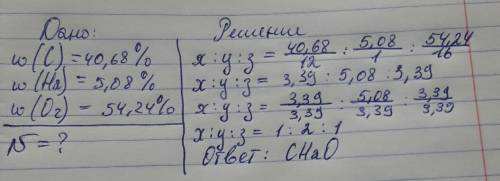 Дано:
w(C)=40,68%
w(H₂)=5,08%
w(O₂)=54,24%
N=?
Решение
x:y:z = 40,68/12 : 5,08/1 : 54,24/16
x:y:z = 3,39 : 5,08 : 3,39
x:y:z = 3,39/3,39 : 5,08/3,39 : 3,39/3,39
x:y:z = 1:2:1
Ответ: CH₂O